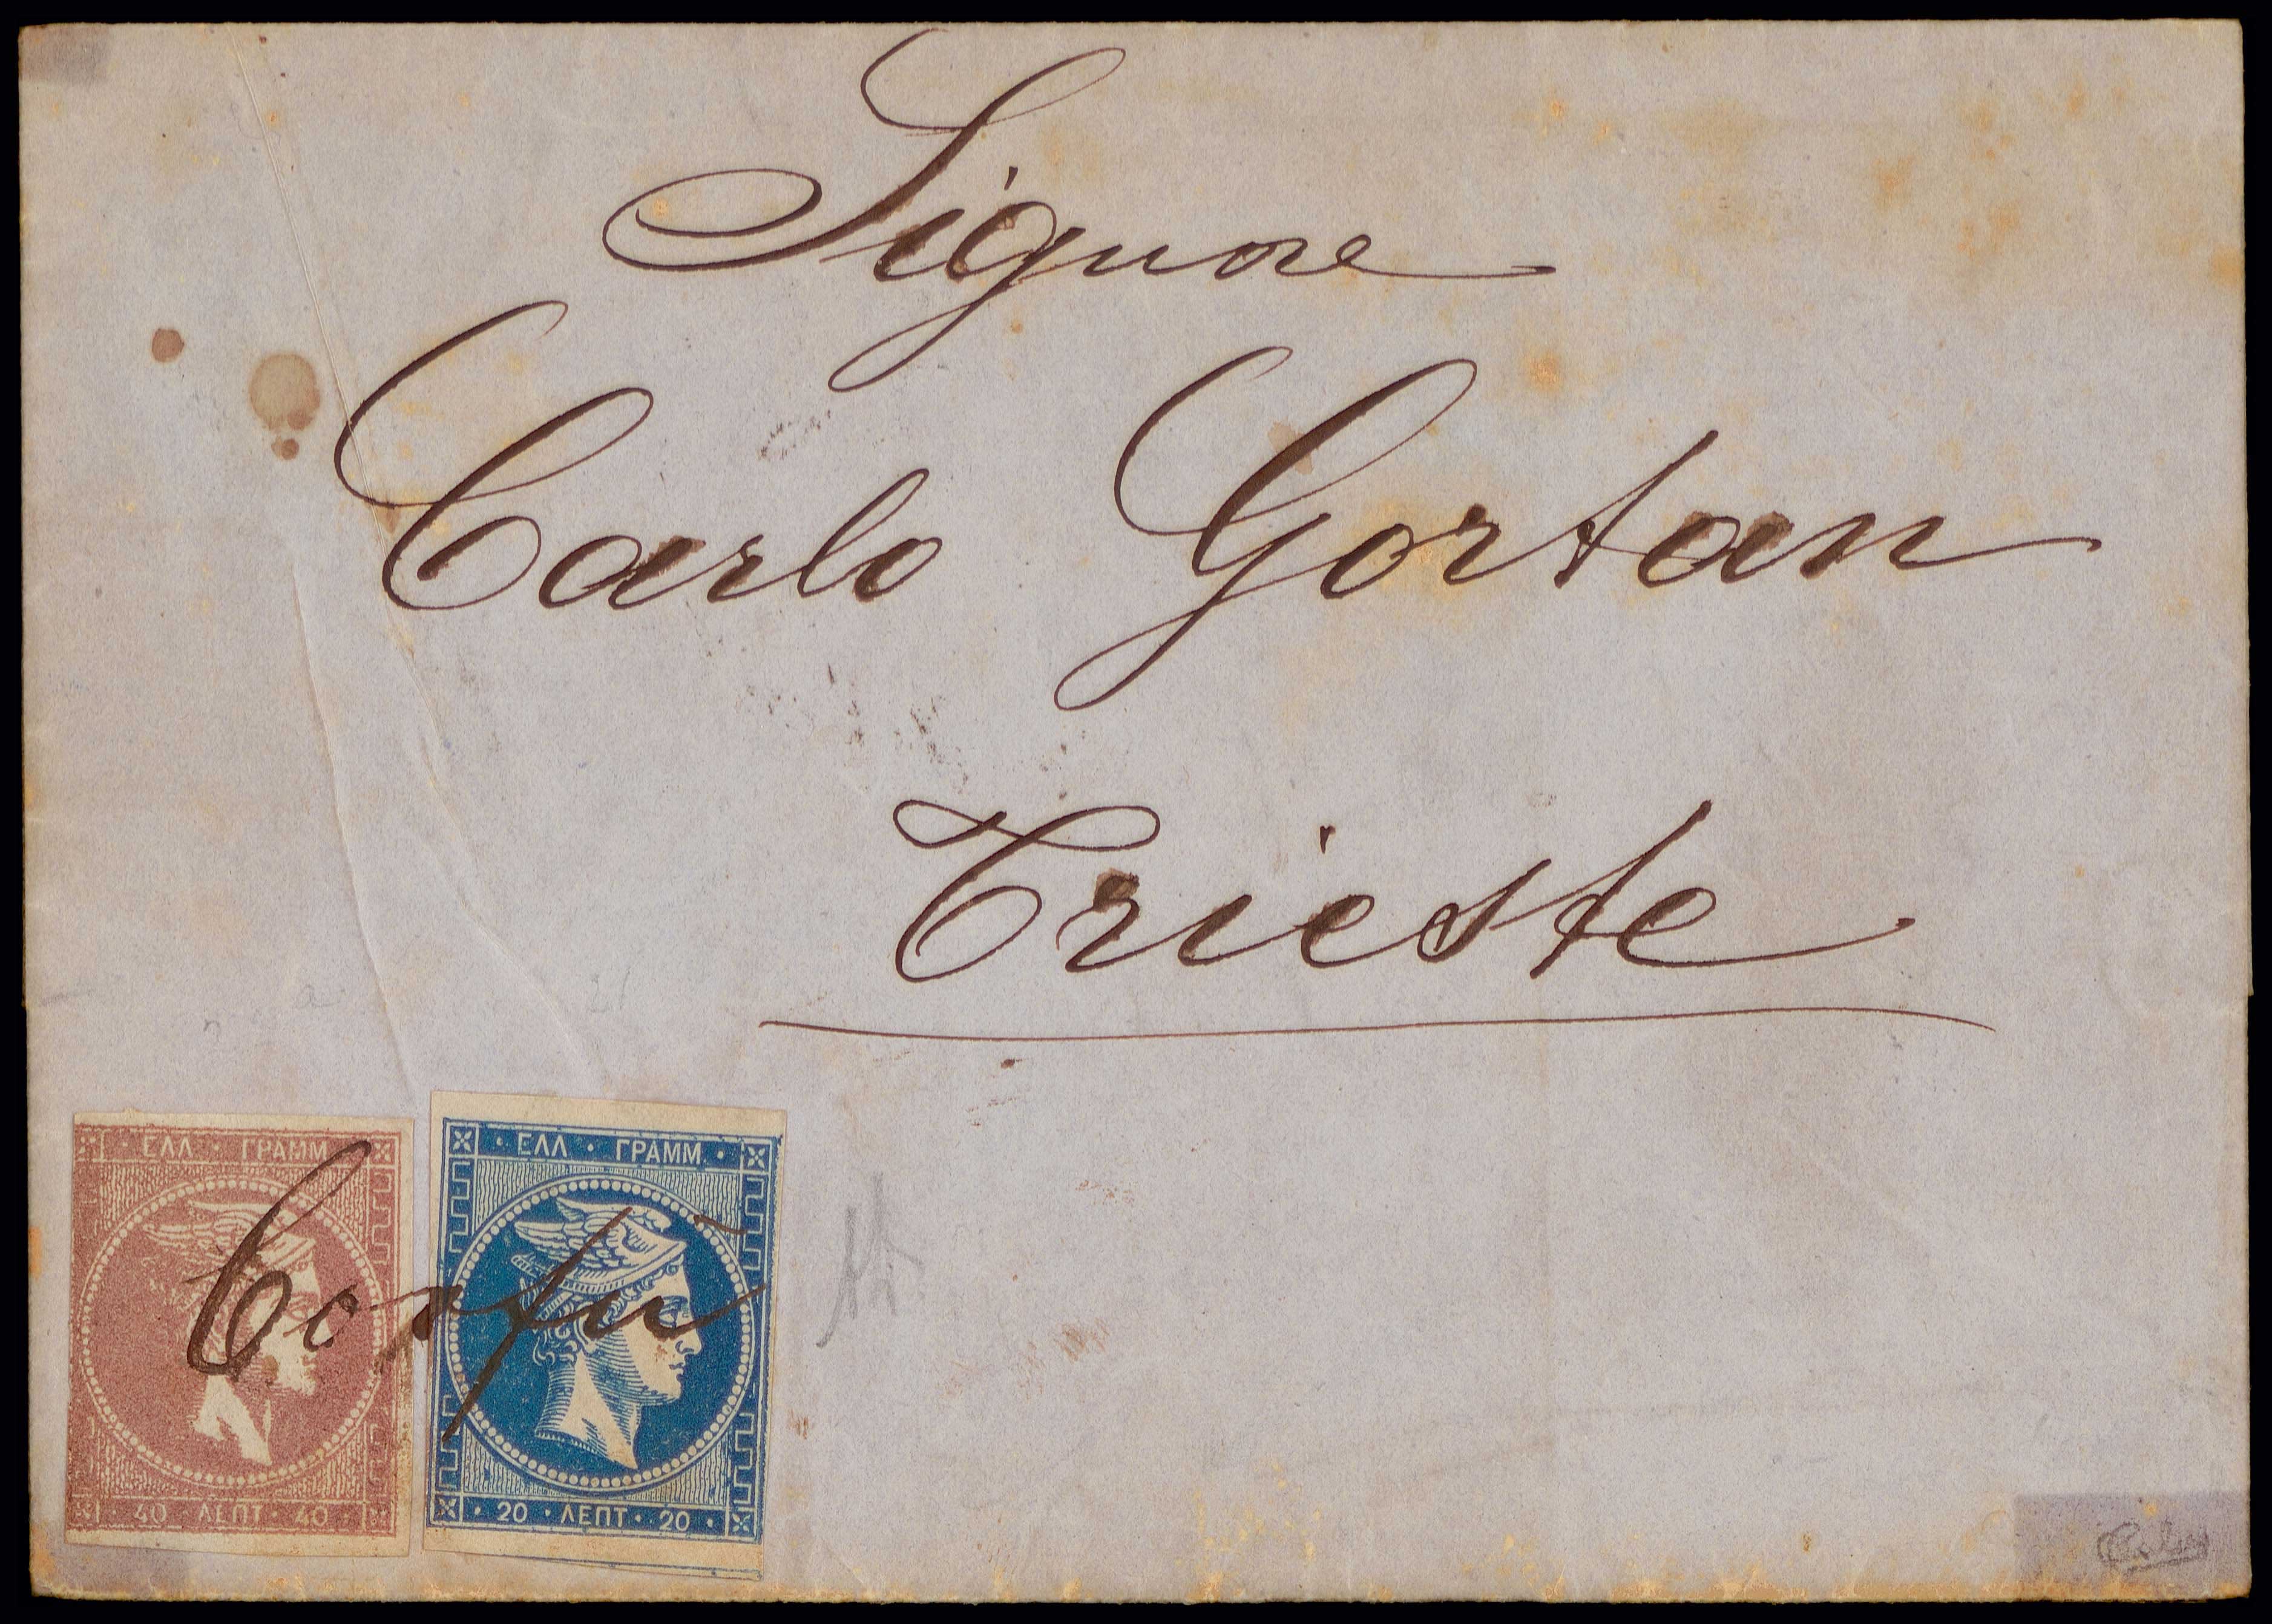 Signore
Carlo Gortan
Trieste
ΕΛΛ · ΓΡΑΜΜ
40 ΛΕΠΤ · 40
· ΕΛΛ · ΓΡΑΜΜ. ·
· 20 · ΛΕΠΤ · 20 ·
Corfù